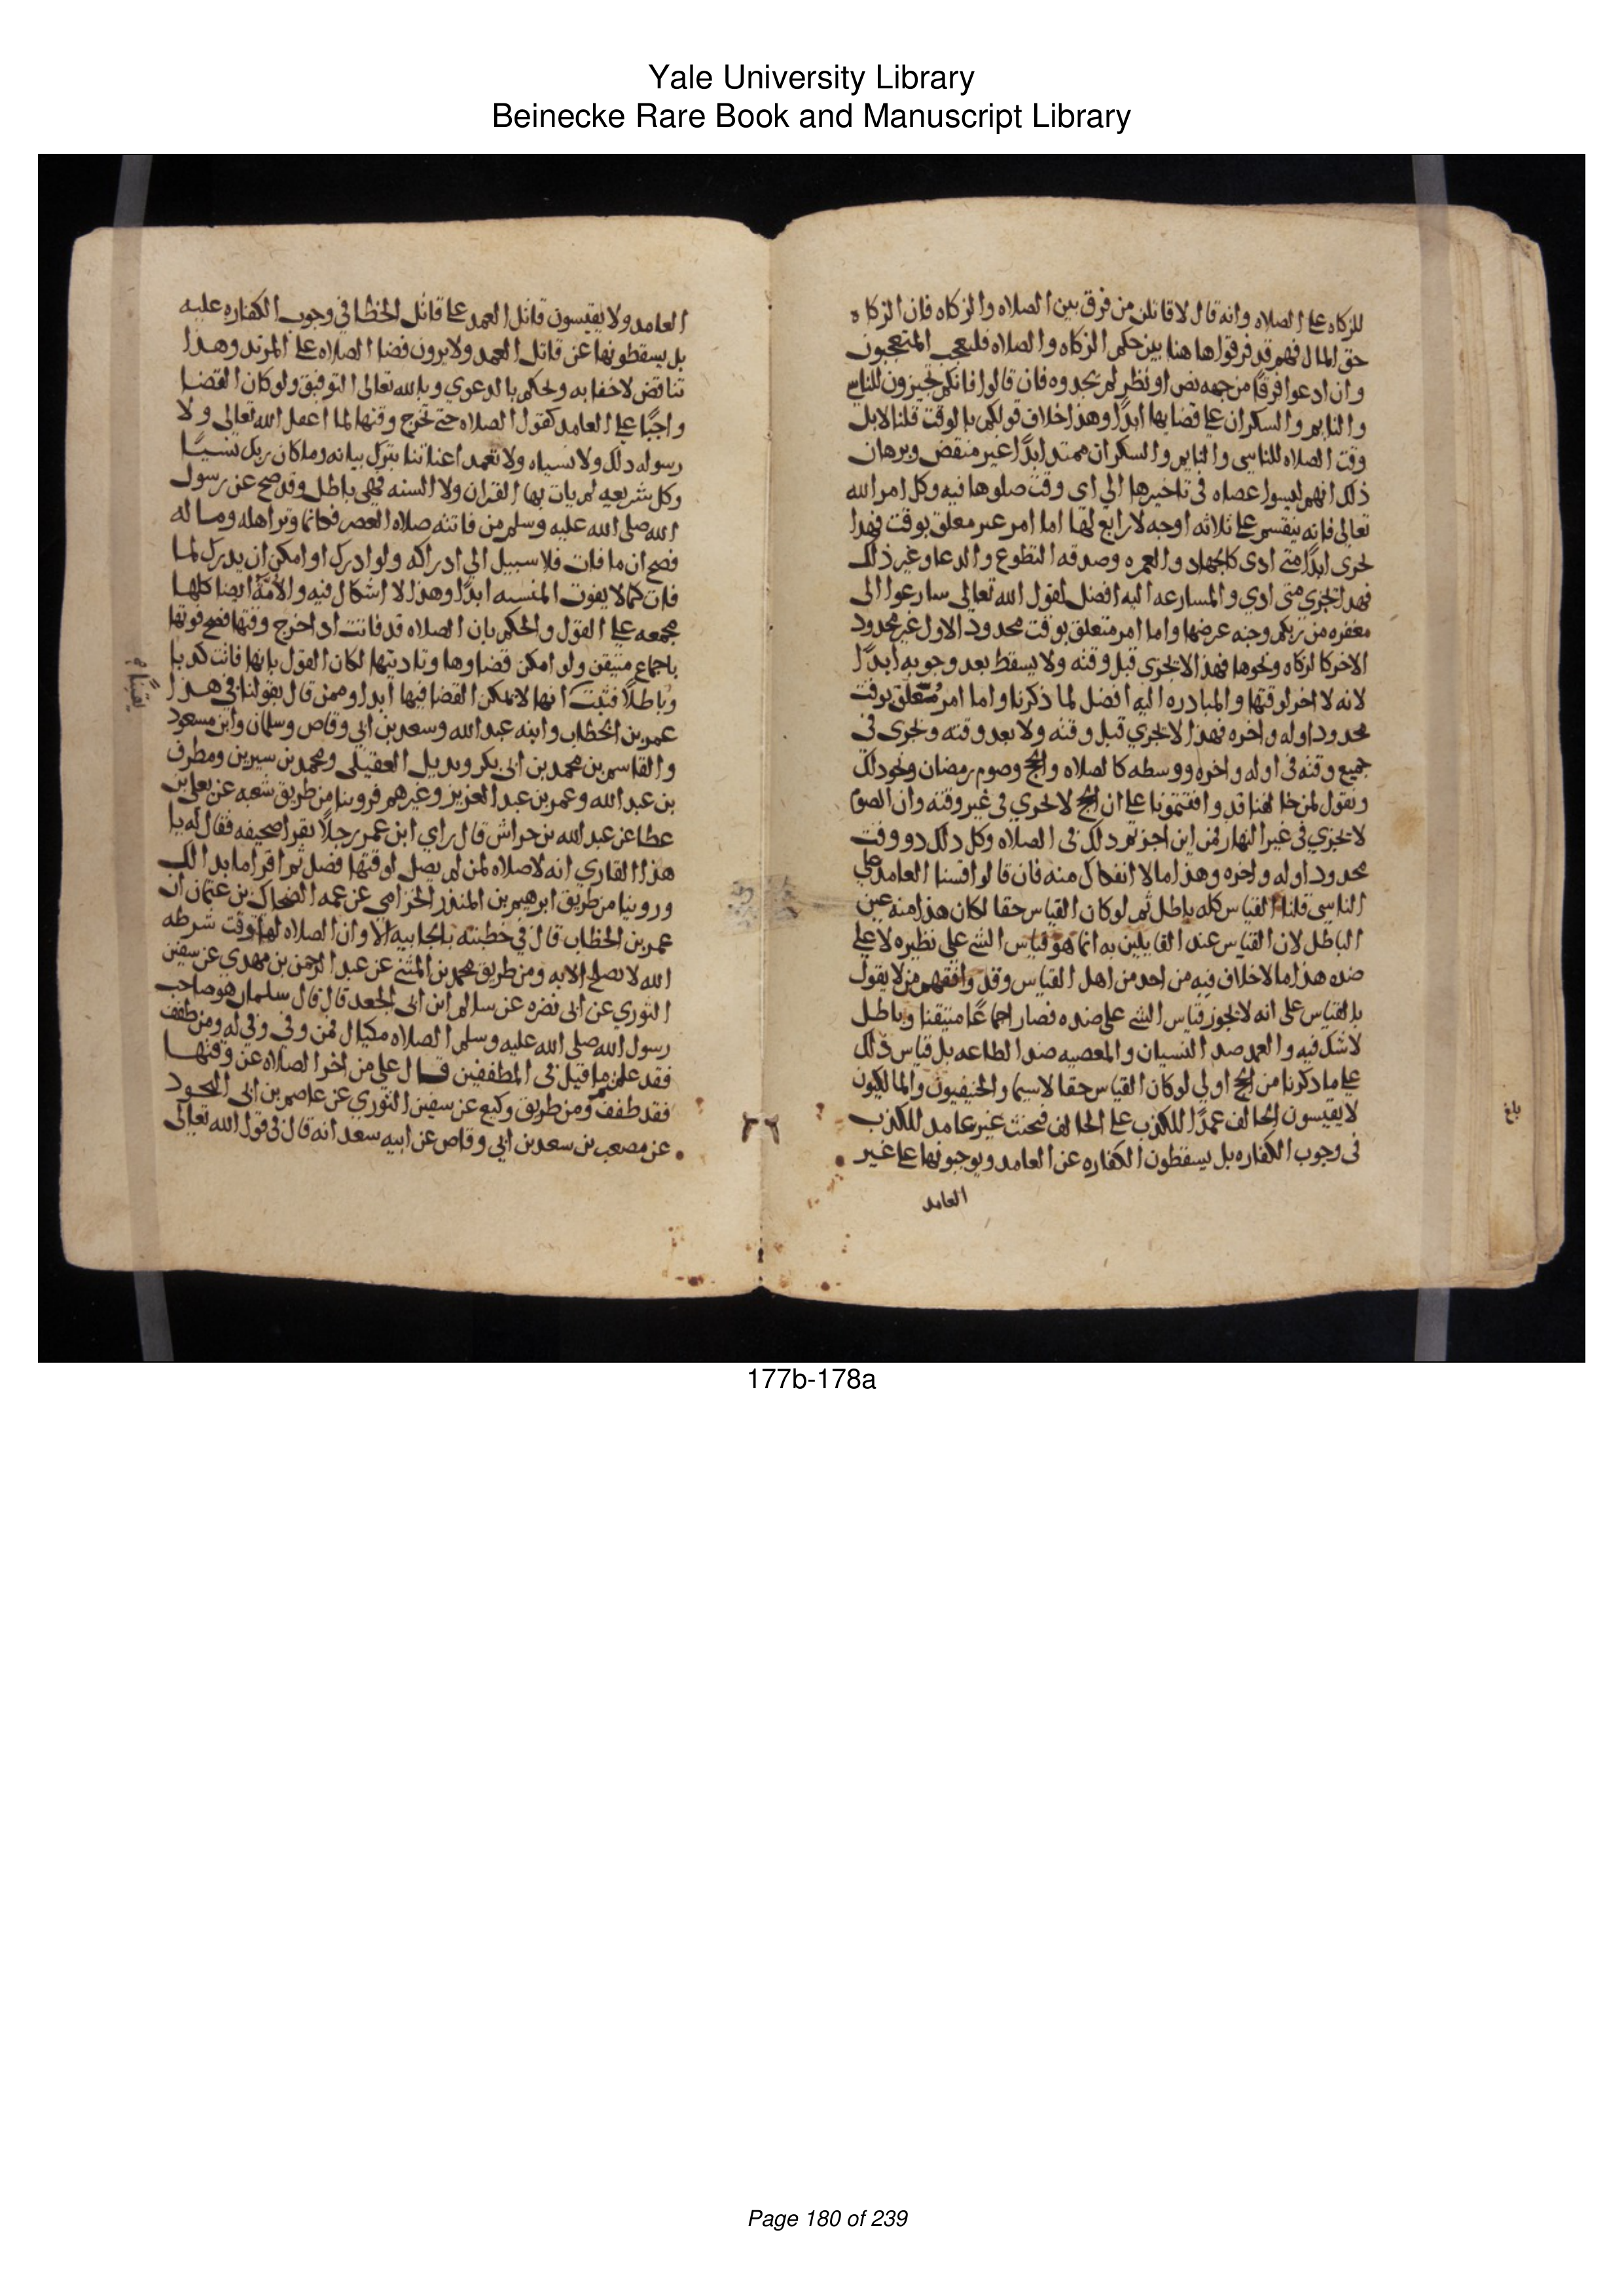 Yale University Library
Beinecke Rare Book and Manuscript Library
للزكاه على الصلاه وانه قال لاقاتلن من فرق بين الصلاه والزكاه فان الزكاه
حق المال فهم قد فرقوا هاهنا بين حكم الزكاه والصلاه فليعجب المتعجبون
وان ادعوا فرقا من جهه نص او نظر لم يجدوه فان قالوا فانكم تجيزون للناسي
والنايم والسكران على قضايها ابدًا وهذا خلاف قولكم بالوقت قلنا لا بل
وقت الصلاه للناسي والنايم والسكران ممتد ابدًا غير منقض وبرهان
ذلك انهم ليسوا عصاه في تاخيرها الي اي وقت صلوها فيه وكل امر الله
تعالى فانه ينقسم على ثلاثه اوجه لا رابع لها اما امر غير معلق بوقت فهذا
يجزى ابدًا متى ادى كالجهاد والعمره وصدقه التطوع والدعا وغير ذلك
فهذا يجزي متى ادي والمسارعه اليه افضل لقول الله تعالى سارعوا الى
مغفره من ربكم وجنه عرضها واما امر متعلق بوقت محدود الاول غير محدود
الاخر كالزكاه ونحوها فهذا لا يجزى قبل وقته ولا يسقط بعد وجوبه ابدًا
لانه لا اخر لوقتها والمبادره اليه افضل لما ذكرنا واما امر متعلق بوقت
محدود اوله واخره فهذا لا يجزي قبل وقته ولا بعد وقته ويجزى في
جميع وقته في اوله واخره ووسطه كالصلاه والحج وصوم رمضان ونحو ذلك
ونقول لمن خالفنا قد وافقتمونا على ان الحج لا يجزي في غير وقته وان الصوم
لا يجزي في غير النهار فمن اين اجزتم ذلك في الصلاه وكل ذلك ذو وقت
محدود اوله واخره وهذا ما لا انفكاك منه فان قالوا قسنا العامد على
الناسي قلنا القياس كله باطل ثم لو كان القياس حقا لكان هذا منه عين
الباطل لان القياس عند القايلين به انما هو قياس الشي على نظيره لا على
ضده هذا ما لا خلاف فيه من احد من اهل القياس وقد وافقهم من لا يقول
بالقياس على انه لا يجوز قياس الشي على ضده فصار اجماعًا متيقنا وباطل
لا شك فيه والعمد ضد النسيان والمعصيه ضد الطاعه بل قياس ذلك
على ما ذكرنا من الحج اولي لو كان القياس حقا لاسيما والحنيفيون والمالكيون
لا يقيسون الحالف عمدًا للكذب على الحالف فيحنث غير عامد للكذب
في وجوب الكفاره بل يسقطون الكفاره عن العامد ويوجبونها على غير
العامد
بلغ
العامد ولا يقيسون قاتل العمد على قاتل الخطا في وجوب الكفاره عليه
بل يسقطونها عن قاتل العمد ولا يرون قضا الصلاه على المرتد وهذا
تناقض لا خفا به وتحكم بالدعوي وبالله تعالى التوفيق ولو كان القضا
واجبًا على العامد كقول الصلاه حتى تخرج وقتها لما اغفل الله تعالى ولا
رسوله ذلك ولا نسياه ولا تعمدا عناتنا بترك بيانه وما كان ربك نسيًا
وكل شريعه لم يات بها القران ولا السنه فهي باطل وقد صح عن رسول
الله صلى الله عليه وسلم من فاتته صلاه العصر فكانما وتر اهله وماله
فصح ان ما فات فلا سبيل الي ادراكه ولو ادرك او امكن ان يدرك لما
فات كما لا يفوت المنسيه ابدًا وهذا لا اشكال فيه والامه ايضا كلها
مجمعه على القول والحكم بان الصلاه قد فاتت اذا خرج وقتها فصح فوتها
باجماع متيقن ولو امكن قضاوها وتاديتها لكان القول بانها فاتت كذبا
وباطلًا فثبت انها لا يمكن القضا فيها ابدا وممن قال بقولنا في هذا
عمر بن الخطاب وابنه عبد الله وسعد بن ابي وقاص وسلمان وابن مسعود
والقاسم بن محمد بن ابي بكر وبديل العقيلي ومحمد بن سيرين ومطرف
بن عبد الله وعمر بن عبد العزيز وغيرهم فروينا من طريق شعبه عن يعلى بن
عطا عن عبد الله بن حراش قال راي ابن عمر رجلًا يقرا صحيفه فقال له يا
هذا القاري انه لا صلاه لمن لم يصل لوقتها فصل ثم اقرا ما بدا لك
وروينا من طريق ابرهيم بن المنذر الحزامي عن عمه الضحاك بن عثمان ان
عمر بن الخطاب قال في خطبته بالجابيه الا وان الصلاه لها وقت شرطه
الله لا تصلح الا به ومن طريق محمد بن المثنى عن عبد الرحمن بن مهدي عن سفين
الثوري عن ابي نضره عن سالم ابن ابي الجعد قال قال سلمان هو صاحب
رسول الله صلى الله عليه وسلم الصلاه مكيال فمن وفى وفي له ومن طفف
فقد علمتم ما قيل في المطففين قال علي من اخر الصلاه عن وقتها
فقد طفف ومن طريق وكيع عن سفين الثوري عن عاصم بن ابي النجود
عن مصعب بن سعد بن ابي وقاص عن ابيه سعد انه قال في قول الله تعالى
177b-178a
Page 180 of 239